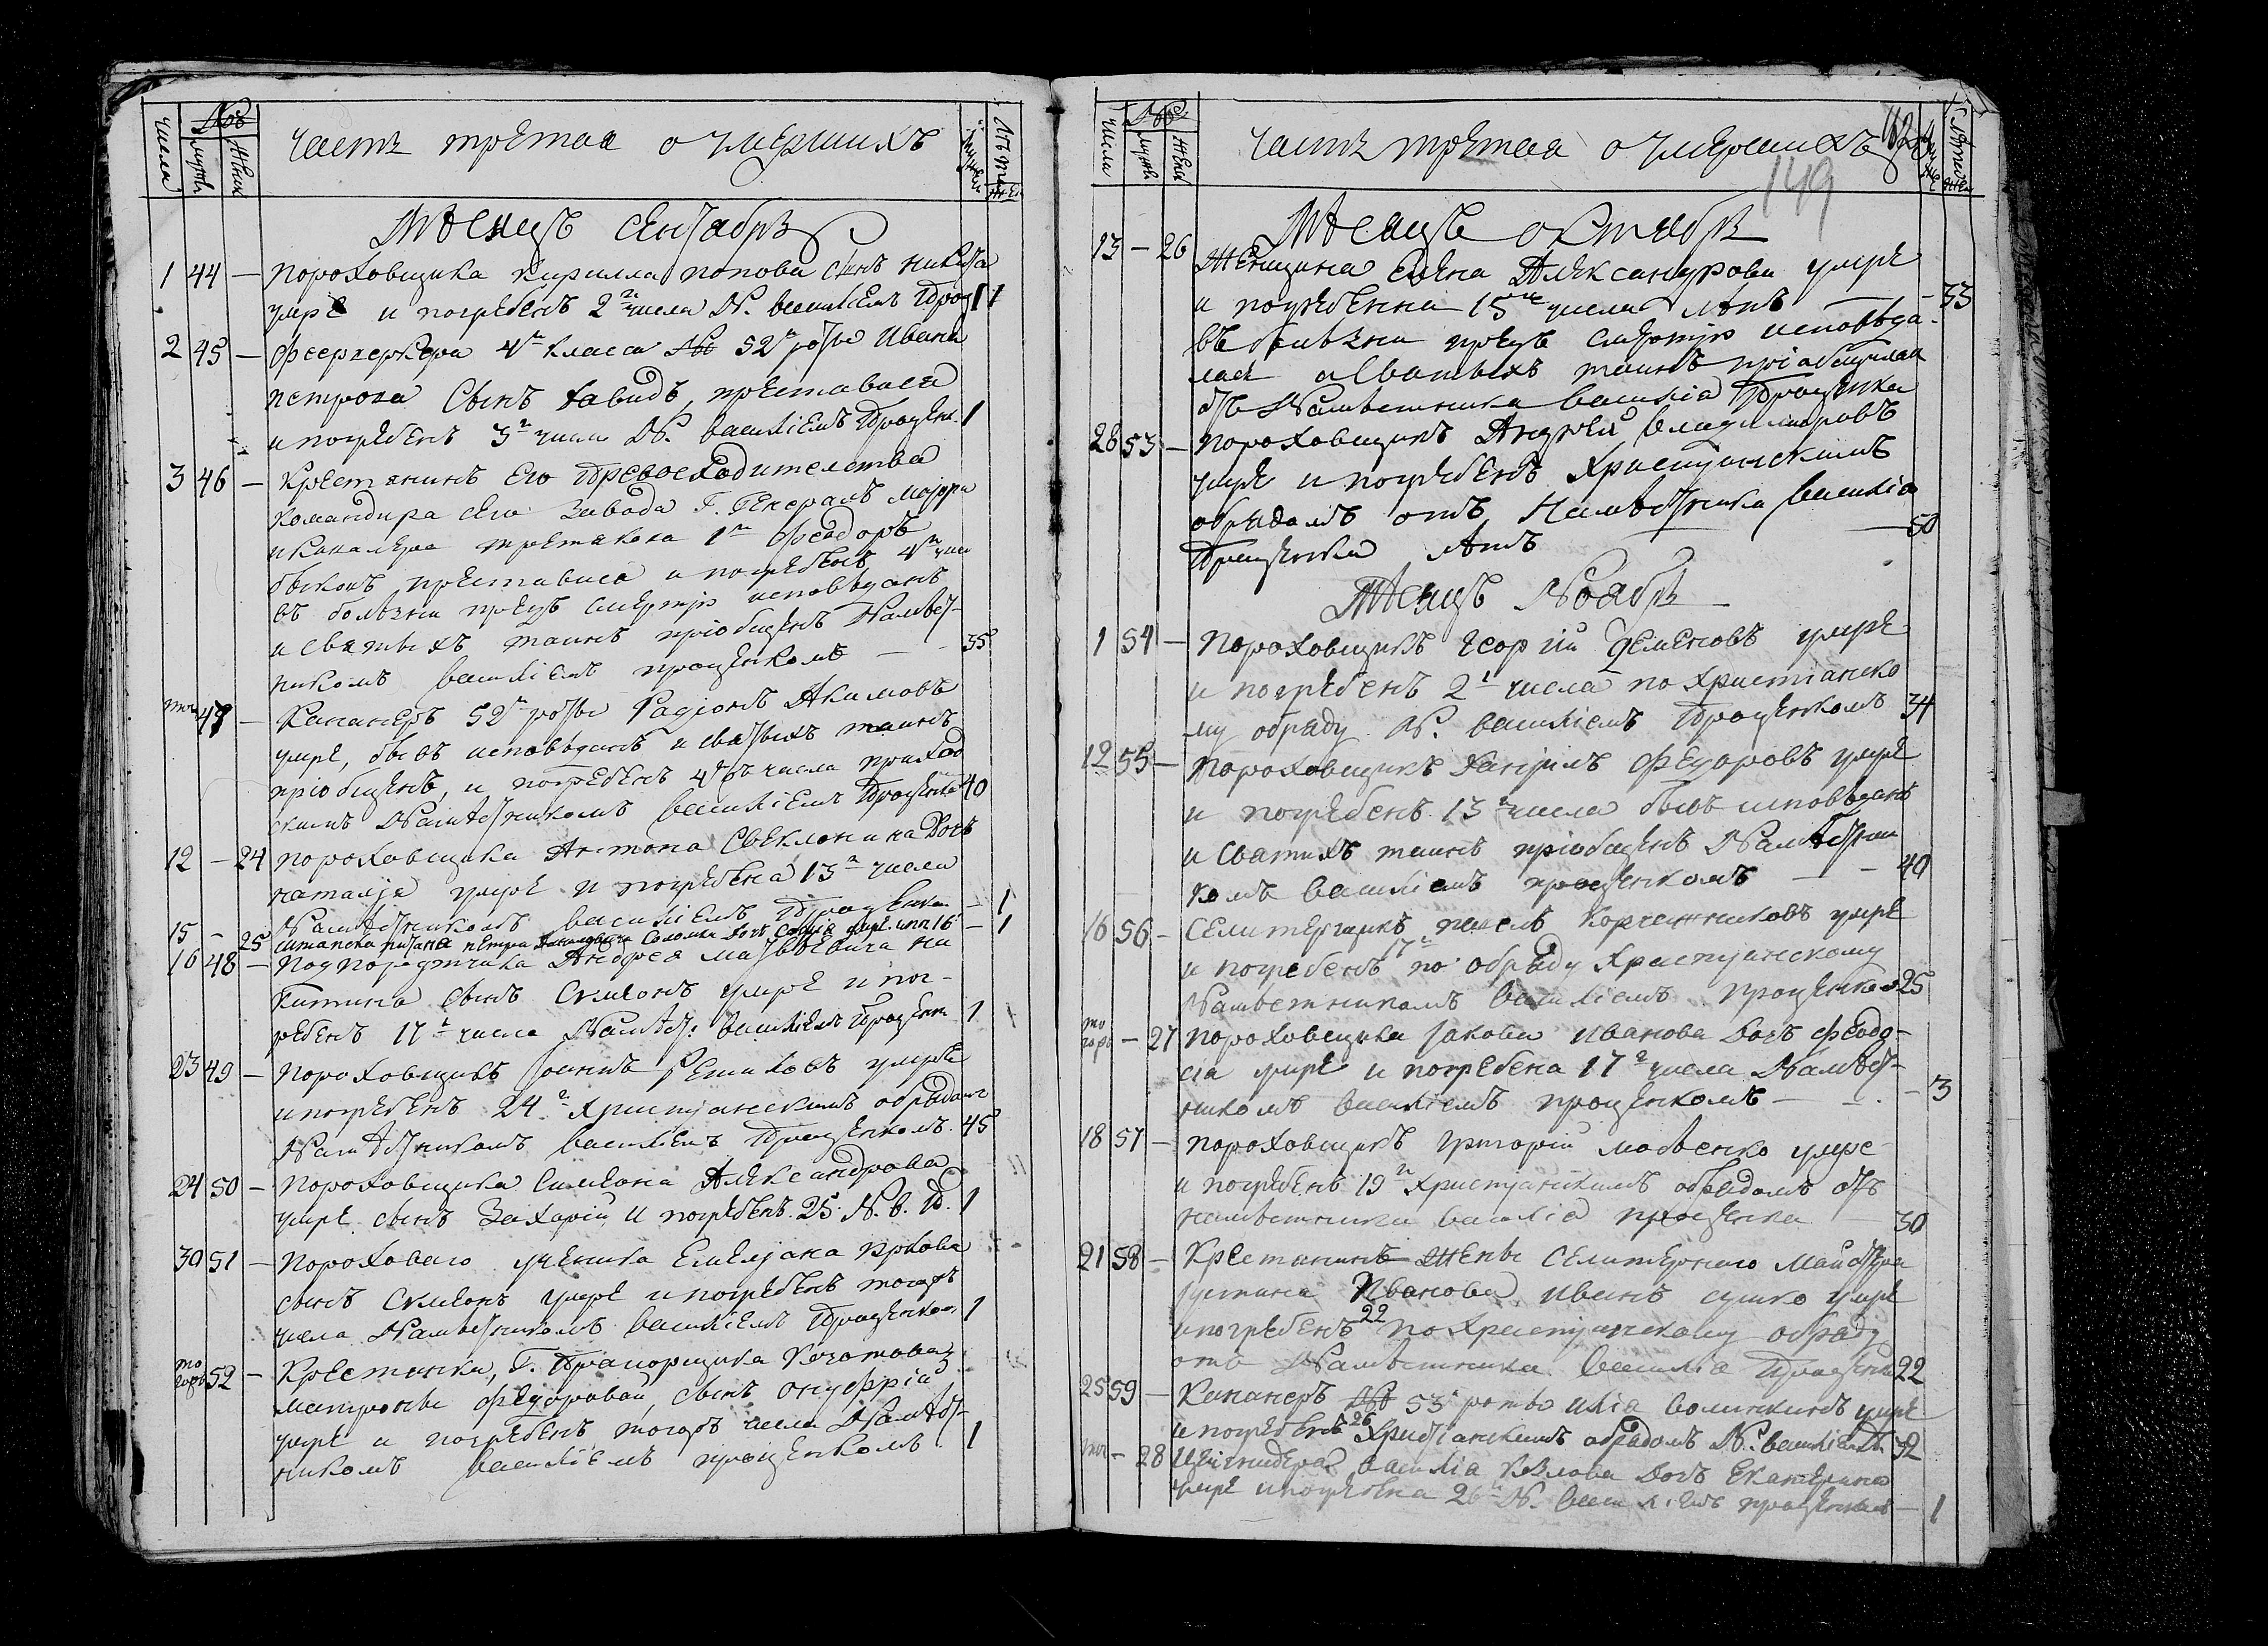 числа
№овъ
мужеск
женск
часть третая о умершихъ
Лѣта
мужеск
жен
Мѣсяцъ сентабрь
1 44 — пороховщика Кирилла попова сынъ никита
умре и погребенъ 2 г числа Н. василіемъ Проц 1
2 45 — феерверкера 4 класса № 52 роты Ивана
петрова сынъ давидъ преставися
и погребенъ 3 г числа Н. василіемъ Проценк. 1
3 46 — крестянинъ Его Превосходителства
командира сего завода Г. Генералъ маjора
и кавалера третякова 1 феодоръ
быковъ преставися и погребенъ 4 числ
въ болѣзни предъ смертію исповѣданъ
и святыхъ таинъ пріобщенъ Намѣст-
никомъ василіемъ проценкомъ — 35
тог 47 — Кананеръ 52 роты Радіонъ Акимовъ
умре, бывъ исповѣданъ и святыхъ таинъ
пріобщенъ, и погребенъ 4 г числа приход
скимъ Намѣстникомъ василіемъ Проценко 40
12 — 24 пороховщика Антона Свеклонина дочь
наталія умре и погребена 13 г числа
Намѣстникомъ василіемъ Проценко — 1
15 — 25 петра соломки дочь софія умре и п 16 — 1
16 48 — Подпоручика Андрея матвѣевича ни
китина сынъ Симеонъ умре и пог-
ребенъ 17 г числа Намѣст: василіемъ Проценк 1
23 49 — пороховщикъ Іоаннъ Решиховъ умре
и погребенъ 24 г христіанскимъ обрядомъ
Намѣстникомъ василіемъ Проценкомъ 45
24 50 — пороховщика Симеона Александрова
умре сынъ Захарій и погребенъ 25. Н. в. П. 1
30 51 — пороховаго ученика Емеліана
сынъ Симеонъ умре и погребенъ тогожъ
числа Намѣстникомъ василіемъ Проценком 1
то гожъ 52 — крестянки, Г. Прапорщика
матроны феодоровой, сынъ онуфрій
умре и погребенъ тогожъ числа Намѣст-
никомъ василіемъ проценкомъ 1
числа
№
мужеск
женск
часть третая о умершихъ
149
Лѣта
Мѣсяцъ октябрь
13 — 26 женщина Елена Александрова умре
и погребенна 15 числа лѣтъ — 33
въ болѣзни предъ смертію исповѣда-
лася и Святыхъ таинъ пріобщилася
отъ Намѣстника василіа Проценка
28 53 — пороховщикъ Андрей владимировъ
умре и погребенъ христіанскимъ
обрядомъ отъ Намѣстника василіа
Проценка лѣтъ — 50
Мѣсяцъ Ноябрь
1 54 — пороховщикъ Георгій Семеновъ умре
и погребенъ 2 г числа по христіанско
му обряду Н. василіемъ Проценкомъ 34
12 55 — Пороховщикъ Даніилъ федоровъ умре
и погребенъ 13 г числа бывъ исповѣданъ
и Святихъ таинъ пріобщенъ Намѣстни
комъ василіемъ проценкомъ — 40
16 56 — Селитерщикъ павелъ умре
и погребенъ 17 по обряду христіанскому
Намѣстникомъ василіемъ проценком 25
то гожъ — 27 пороховщика Іакова иванова дочь феодо-
сіа умре и погребена 17 г числа Намѣст-
никомъ василіемъ проценкомъ — 3
18 57 — пороховщикъ Григорій мовенко умре
и погребенъ 19 г христіанскимъ обрядомъ отъ
намѣстника василіа проценка — 30
21 58 — Крестянинъ жены Селитернаго Майстра
Устина Иванова иванъ сушко умре
и погребенъ 22 по христіанскому обряду
отъ Намѣстника василіа Проценк 22
25 59 — Кананеръ № 53 роты иліа волинкинъ умре
и погребенъ 26 христіанскимъ обрядомъ Н. василіемъ П. 32
тог — 28 василіа козлова дочь Екатерина
умре и погребена 26 г Н. василіемъ проценкомъ — 1